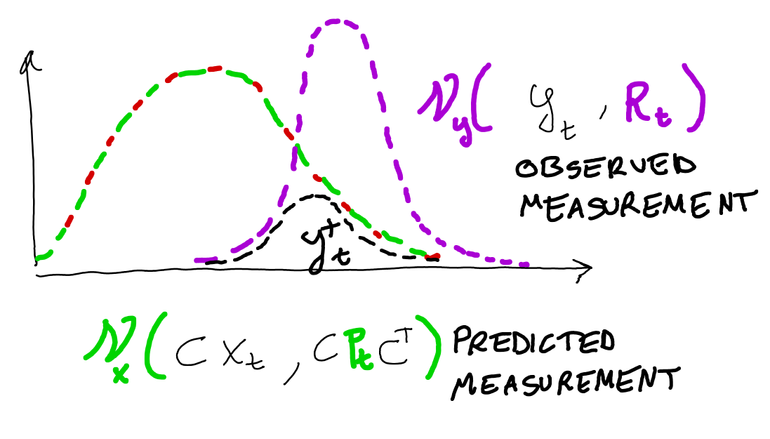 𝒩y( yt , Rt )
OBSERVED
MEASUREMENT
yt+
𝒩x( C xt , C Pt C^T ) PREDICTED
MEASUREMENT